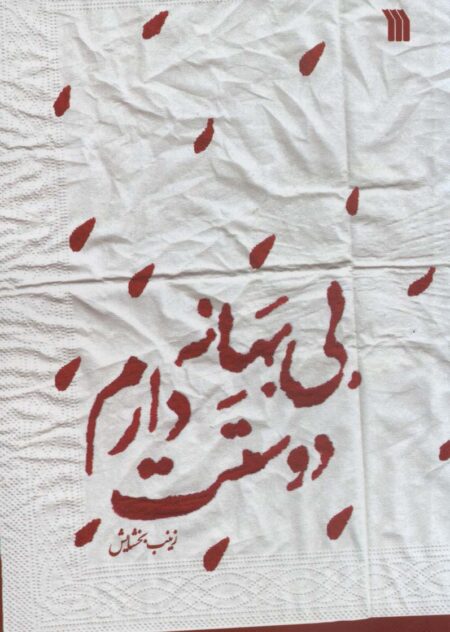 بی بهانه
دوستت دارم
زینب بخشایش